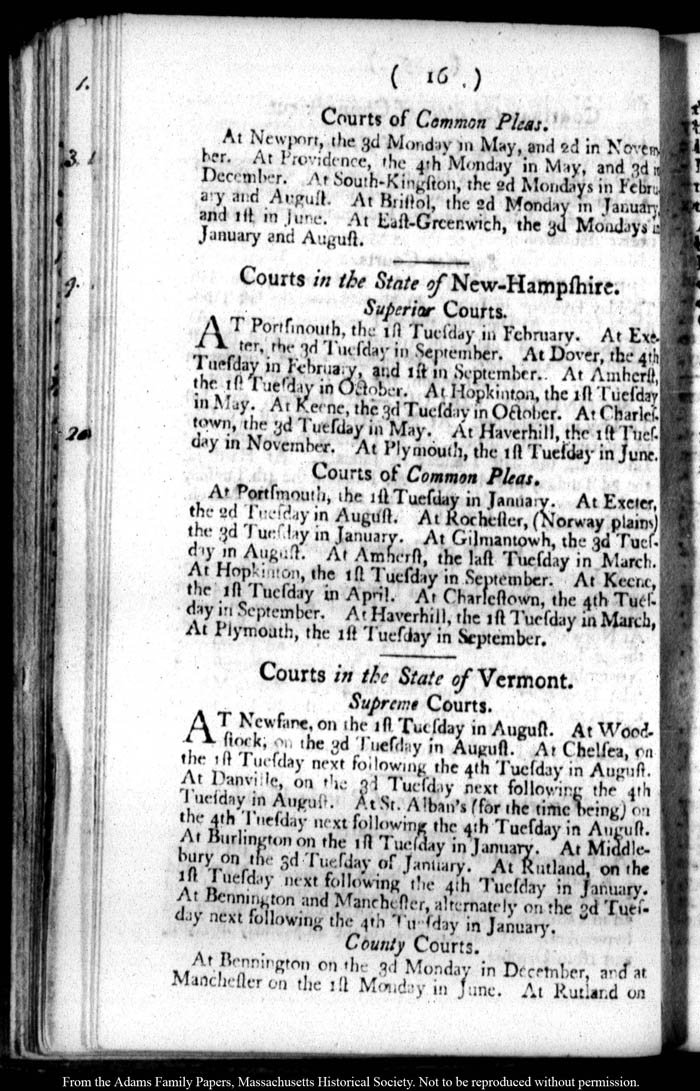 ( 16 . )
Courts of Common Pleas.
At Newport, the 3d Monday in May, and 2d in Novem-
ber. At Providence, the 4th Monday in May, and 3d in
December. At South-Kingſton, the 2d Mondays in Febru-
ary and Auguſt. At Briſtol, the 2d Monday in January,
and 1ſt in June. At Eaſt-Greenwich, the 3d Mondays in
January and Auguſt.
Courts in the State of New-Hampſhire.
Superior Courts.
AT Portſmouth, the 1ſt Tueſday in February. At Exe-
ter, the 3d Tueſday in September. At Dover, the 4th
Tueſday in February, and 1ſt in September. At Amherſt,
the 1ſt Tueſday in October. At Hopkinton, the 1ſt Tueſday
in May. At Keene, the 3d Tueſday in October. At Charleſ-
town, the 3d Tueſday in May. At Haverhill, the 1ſt Tueſ-
day in November. At Plymouth, the 1ſt Tueſday in June.
Courts of Common Pleas.
At Portſmouth, the 1ſt Tueſday in January. At Exeter,
the 2d Tueſday in Auguſt. At Rocheſter, (Norway plains)
the 3d Tueſday in January. At Gilmantowh, the 3d Tueſ-
day in Auguſt. At Amherſt, the laſt Tueſday in March.
At Hopkinton, the 1ſt Tueſday in September. At Keene,
the 1ſt Tueſday in April. At Charleſtown, the 4th Tueſ-
day in September. At Haverhill, the 1ſt Tueſday in March,
At Plymouth, the 1ſt Tueſday in September.
Courts in the State of Vermont.
Supreme Courts.
AT Newfane, on the 1ſt Tueſday in Auguſt. At Wood-
ſtock, on the 3d Tueſday in Auguſt. At Chelſea, on
the 1ſt Tueſday next following the 4th Tueſday in Auguſt.
At Danville, on the 3d Tueſday next following the 4th
Tueſday in Auguſt. At St. Alban's (for the time being) on
the 4th Tueſday next following the 4th Tueſday in Auguſt.
At Burlington on the 1ſt Tueſday in January. At Middle-
bury on the 3d Tueſday of January. At Rutland, on the
1ſt Tueſday next following the 4th Tueſday in January.
At Bennington and Mancheſter, alternately on the 3d Tueſ-
day next following the 4th Tueſday in January.
County Courts.
At Bennington on the 3d Monday in December, and at
Mancheſter on the 1ſt Monday in June. At Rutland on
1.
3. 1
9.
20
From the Adams Family Papers, Massachusetts Historical Society. Not to be reproduced without permission.